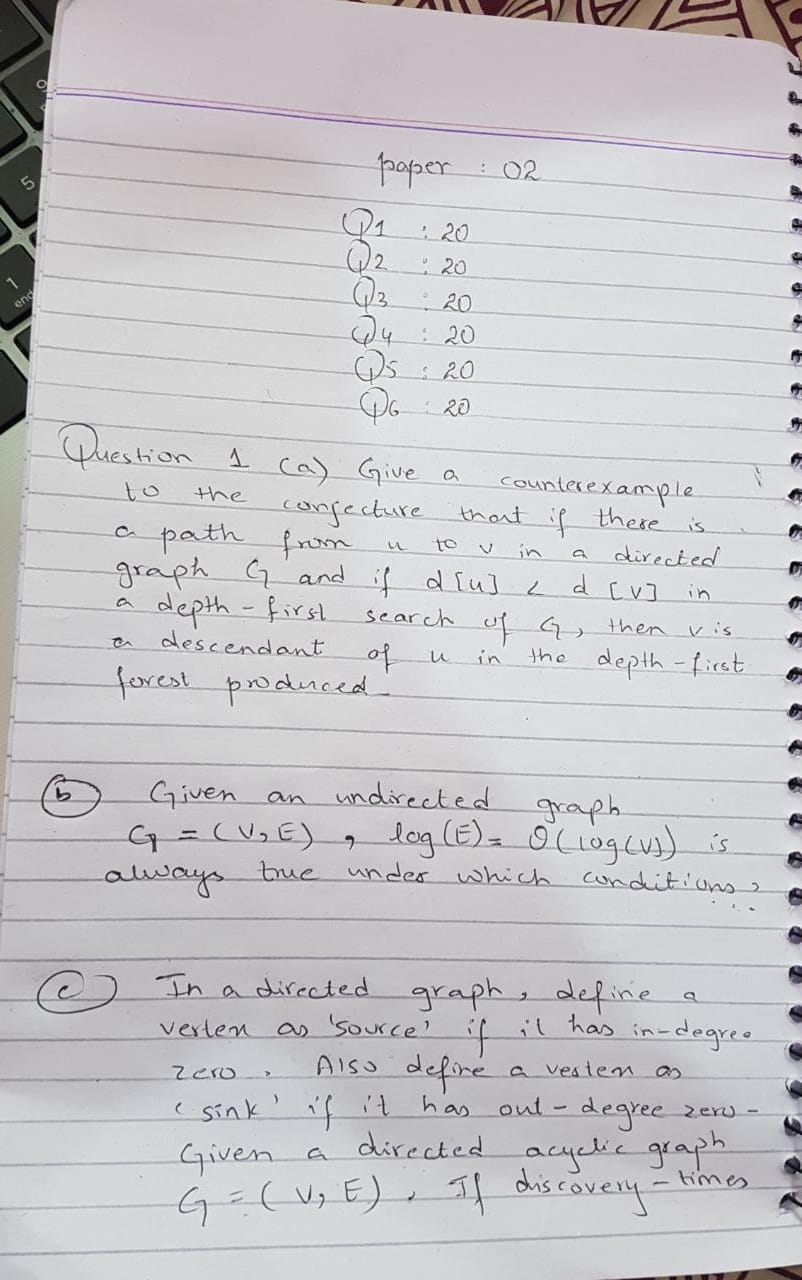 paper : 02
Q1 : 20
Q2 : 20
Q3 : 20
Q4 : 20
Q5 : 20
Q6 : 20
Question 1 (a) Give a counterexample
to the conjecture that if there is
a path from u to v in a directed
graph G and if d[u] < d[v] in
a depth-first search of G, then v is
a descendant of u in the depth-first
forest produced
(b) Given an undirected graph
G = (V, E), log(E) = Θ(log(V)) is
always true under which conditions?
...
(c) In a directed graph, define a
vertex as 'source' if it has in-degree
zero. Also define a vertex as
'sink' if it has out-degree zero-
Given a directed acyclic graph
G = (V, E), If discovery-times
5
1
end